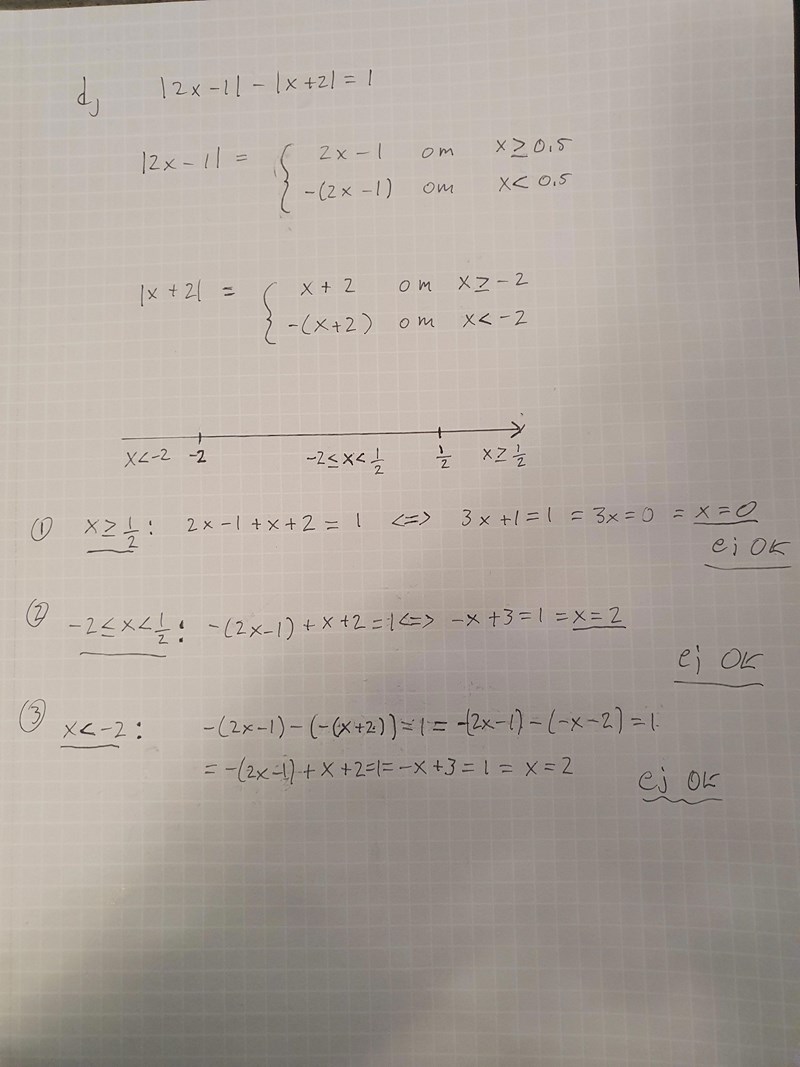 d) |2x-1| - |x+2| = 1
|2x-1| = { 2x-1 om x ≥ 0,5
-(2x-1) om x < 0,5
|x+2| = { x+2 om x ≥ -2
-(x+2) om x < -2
x<-2 -2 -2≤x<1/2 1/2 x≥1/2
① x≥1/2: 2x-1+x+2 = 1 <=> 3x+1=1 = 3x=0 = x=0
ej OK
② -2≤x<1/2: -(2x-1)+x+2=1<=> -x+3=1=x=2
ej OK
③ x<-2: -(2x-1)-(-(x+2))=1= -(2x-1)-(-x-2)=1
= -(2x-1)+x+2=1=-x+3=1=x=2
ej OK